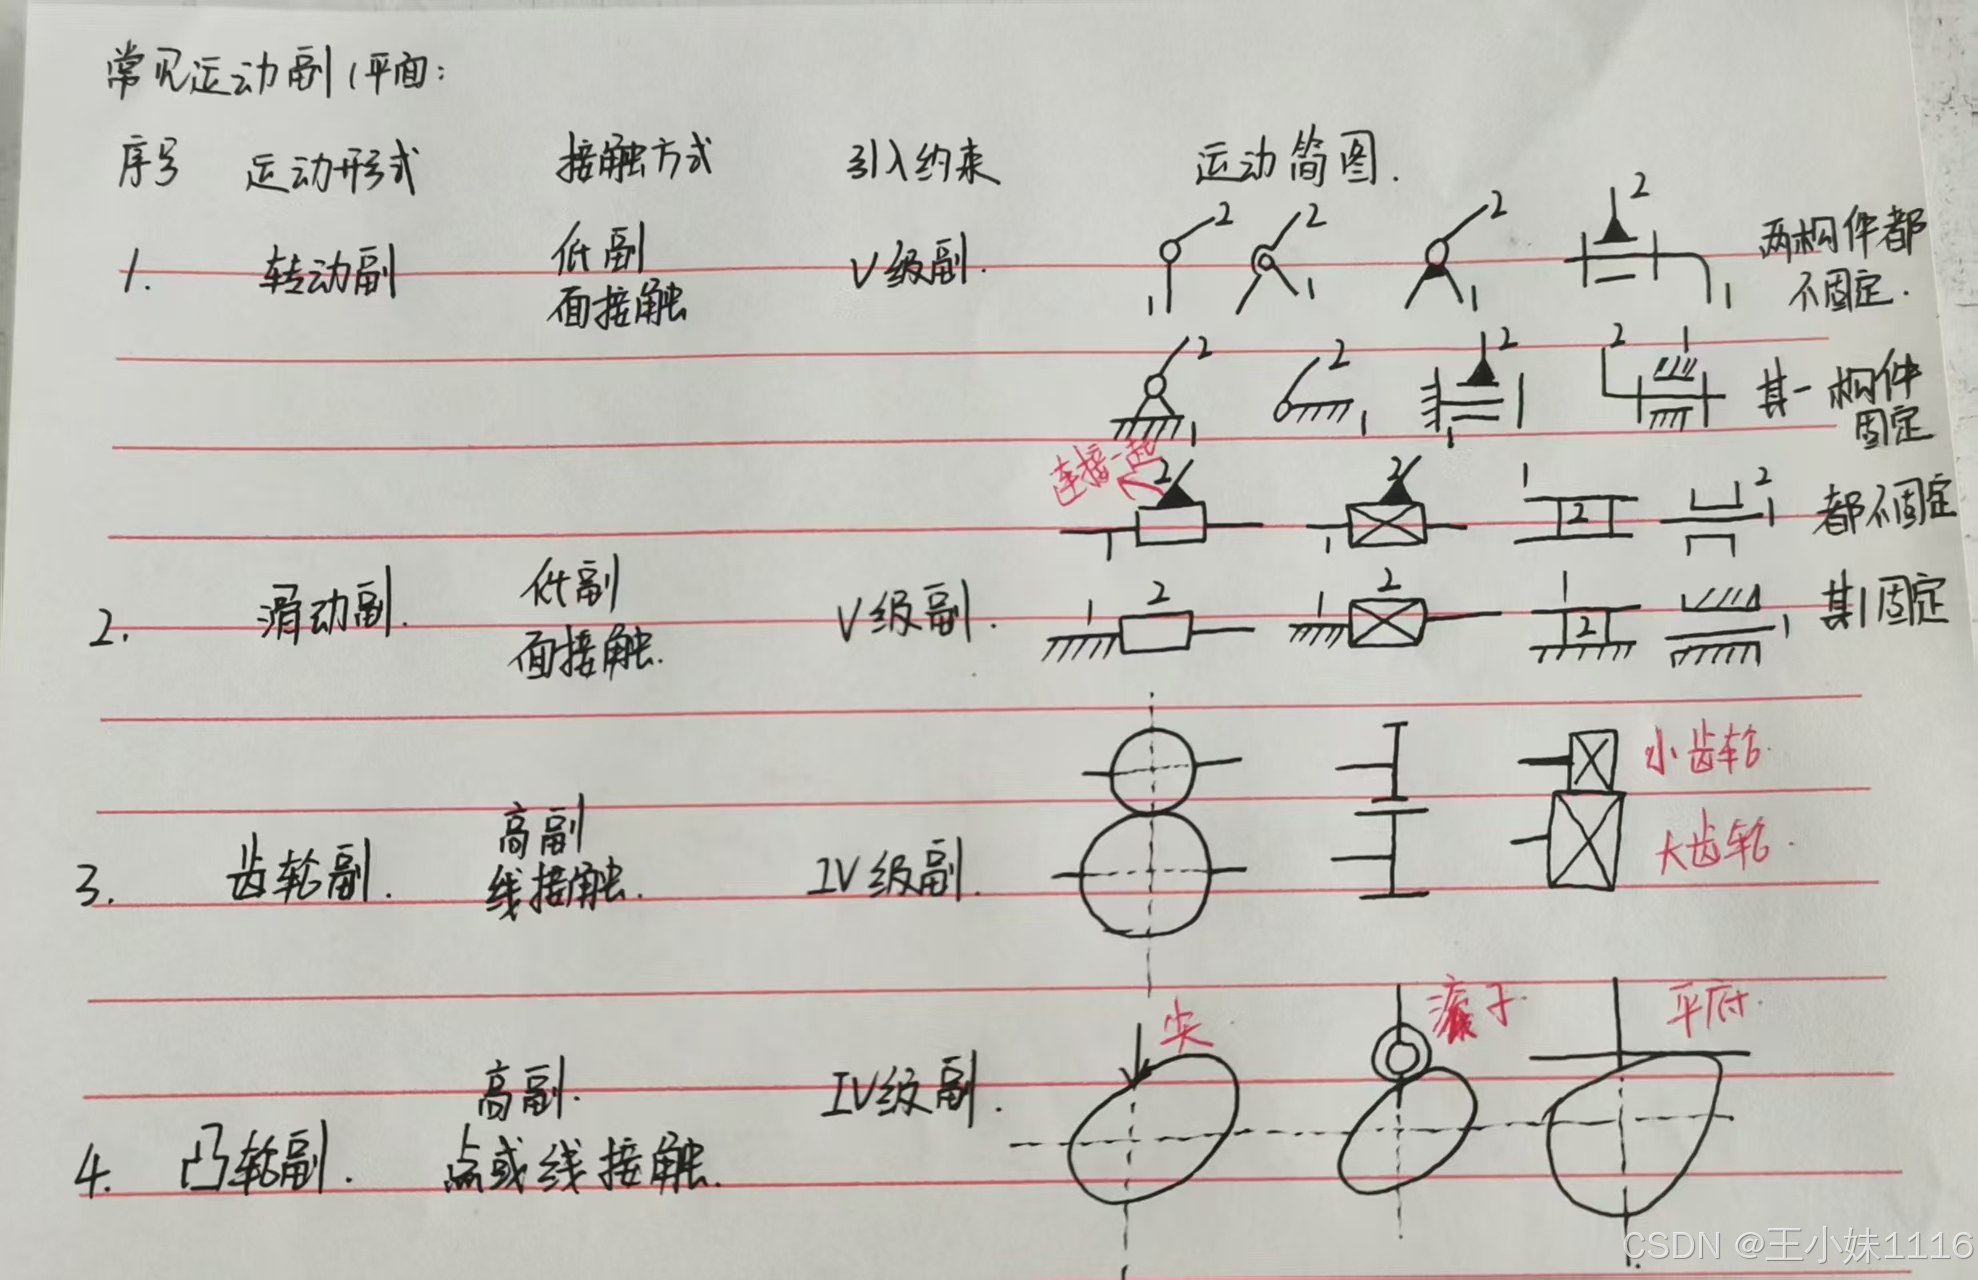 常见运动副(平面:
序号 运动形式 接触方式 引入约束 运动简图.
1. 转动副 低副 V级副. 2 2 2 2 两构件都
面接触 1 1 1 1 不固定.
2 2 2 2 1 其一构件
1 1 1 固定
连接一起
2 2 1 2 2 都不固定
1 1 1
2. 滑动副. 低副 V级副. 1 2 1 2 1 2 1 其1固定
面接触.
小齿轮.
3. 齿轮副. 高副 IV级副. 大齿轮.
线接触.
尖 滚子 平底.
4. 凸轮副. 高副. IV级副.
点或线接触.
CSDN @王小妹1116